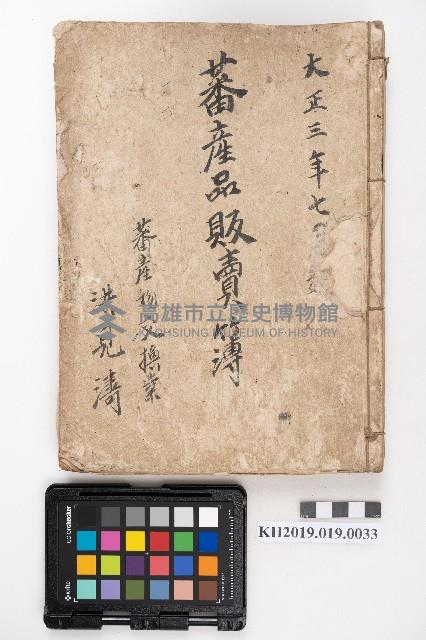 大正三年七
蕃産品販賣
簿
蕃産物交換業
洪
濤
高雄市立歷史博物館
KAOHSIUNG MUSEUM OF HISTORY
KH2019.019.0033
colorchecker
x-rite